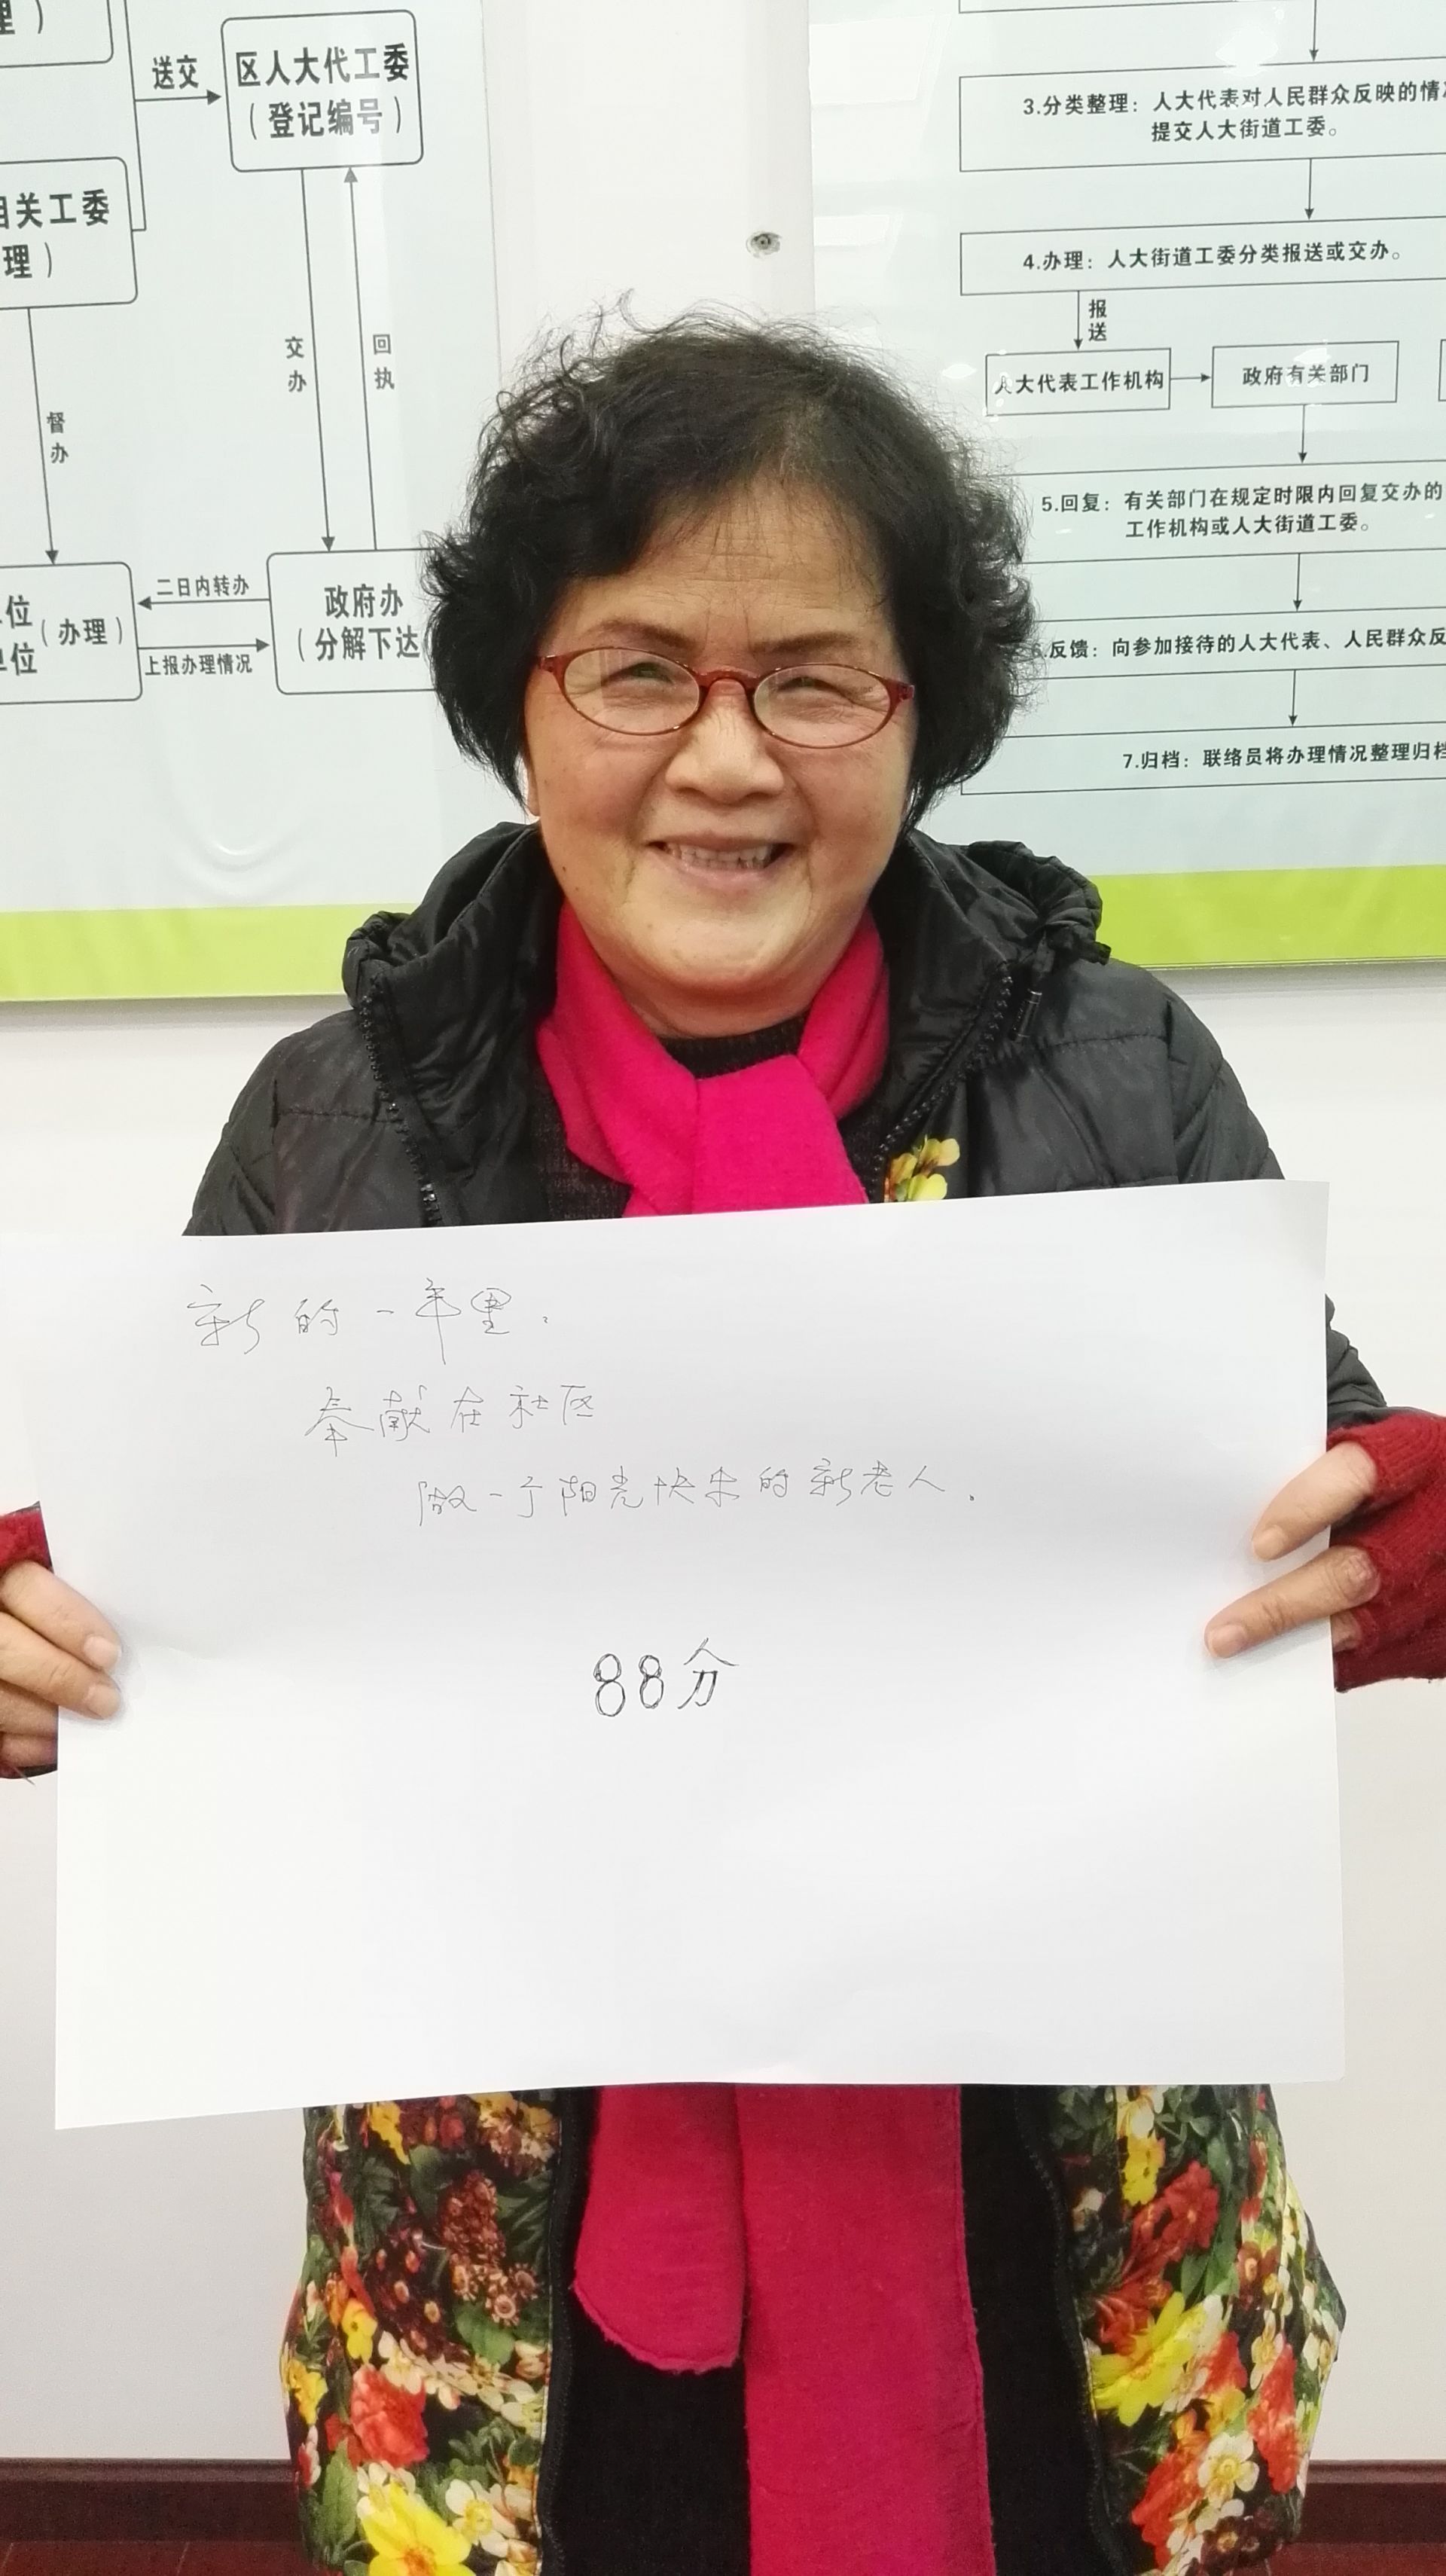 理）
送交
区人大代工委
（登记编号）
相关工委
理）
交办
回执
督办
二日内转办
上报办理情况
位
单位
（办理）
政府办
（分解下达
3.分类整理：人大代表对人民群众反映的情
提交人大街道工委。
4.办理：人大街道工委分类报送或交办。
报送
人大代表工作机构
政府有关部门
5.回复：有关部门在规定时限内回复交办的
工作机构或人大街道工委。
6.反馈：向参加接待的人大代表、人民群众反
7.归档：联络员将办理情况整理归档
新的一年里.
奉献在社区
做一个阳光快乐的新老人.
88分